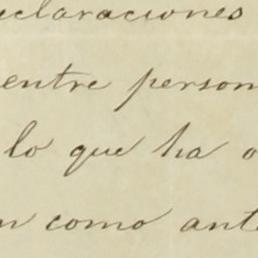 declaraciones
entre person
lo que ha
como ant